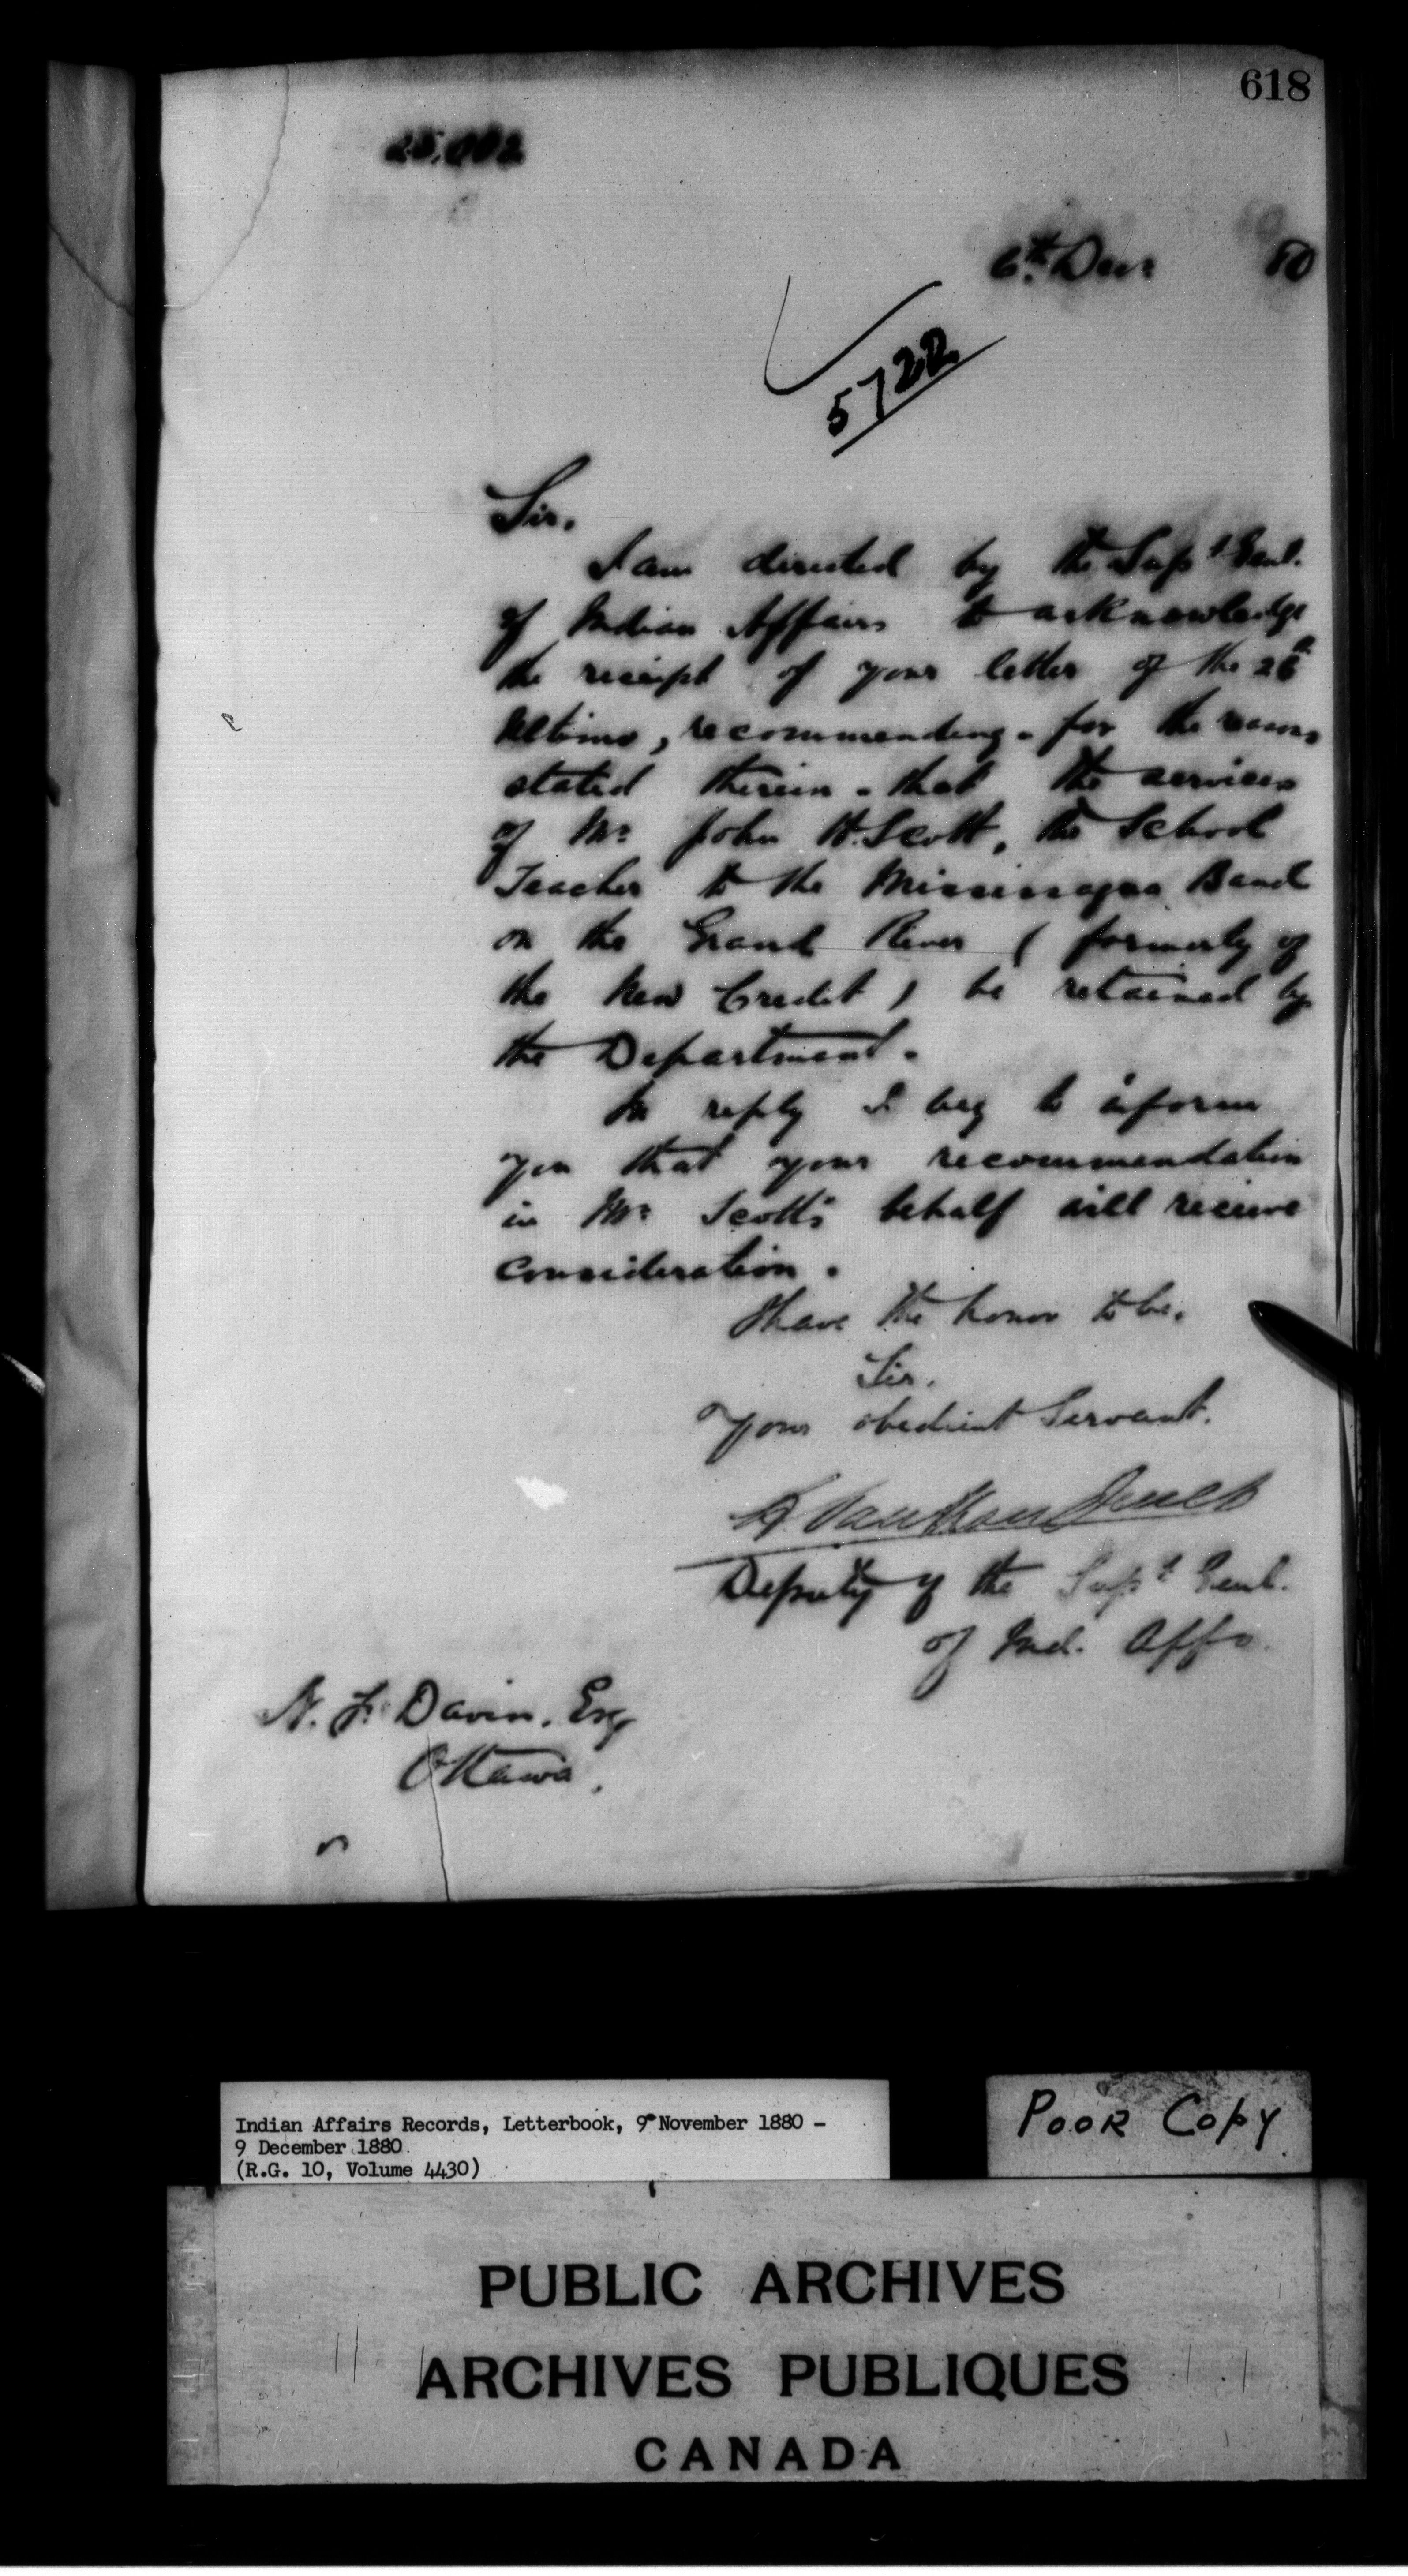 618
25,002
6th Decr 80
5722
Sir,
I am directed by the Supt Genl.
of Indian Affairs to acknowledge
the receipt of your letter of the 26th
Ultimo, recommending - for the reasons
stated therein - that the services
of Mr John H. Scott, the School
Teacher to the Mississagua Band
on the Grand River ( formerly of
the New Credit ) be retained by
the Department.
In reply I beg to inform
you that your recommendation
in Mr Scott's behalf will receive
consideration.
I have the honor to be,
Sir,
Your obedient Servant.
L. VanKoughnet
Deputy of the Supt Genl.
of Ind. Affs.
N. F. Davin, Esq
Ottawa.
Indian Affairs Records, Letterbook, 9 November 1880 -
9 December 1880
(R.G. 10, Volume 4430)
POOR COPY
PUBLIC ARCHIVES
ARCHIVES PUBLIQUES
CANADA